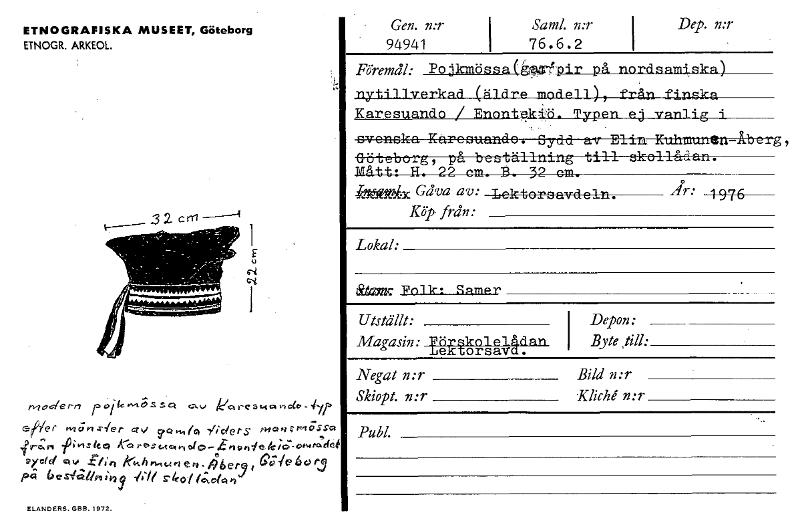 ETNOGRAFISKA MUSEET, Göteborg
ETNOGR. ARKEOL.
32 cm
22 cm
modern pojkmössa av Karesuando-typ
efter mönster av gamla tiders mansmössa
från finska Karesuando-Enontekiö-området
sydd av Elin Kuhmunen-Åberg, Göteborg
på beställning till skollådan
ELANDERS, GBB, 1972.
Gen. n:r Saml. n:r Dep. n:r
94941 76.6.2
Föremål: Pojkmössa( pir på nordsamiska)
nytillverkad (äldre modell), från finska
Karesuando / Enontekiö. Typen ej vanlig i
svenska Karesuando. Sydd av Elin Kuhmunen-Åberg,
Göteborg, på beställning till skollådan.
Mått: H. 22 cm. B. 32 cm.
Insaml. Gåva av: Lektorsavdeln. År: 1976
Köp från:
Lokal:
Stam: Folk: Samer
Utställt: Depon:
Magasin: Förskolelådan Byte till:
Lektorsavd.
Negat n:r Bild n:r
Skiopt. n:r Kliché n:r
Publ.